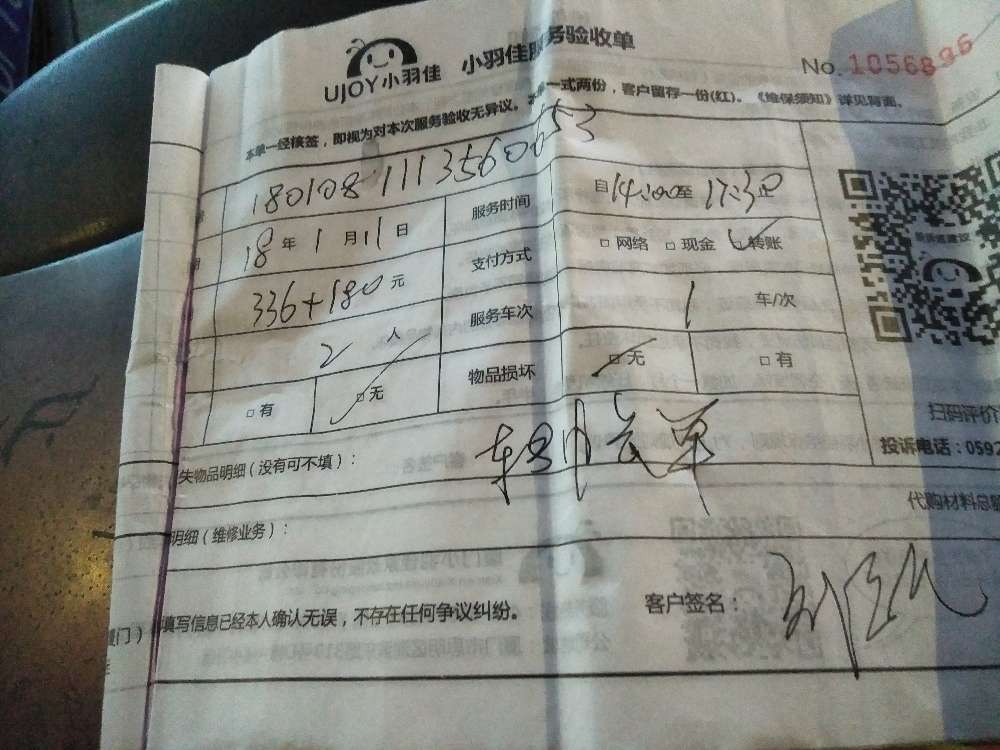 UJOY小羽佳 小羽佳服务验收单
No. 1056896
本单一经核签，即视为对本次服务验收无异议。本单一式两份，客户留存一份(红)。《维保须知》详见背面。
180108111356
服务时间 自14:00至17:30止
18年1月11日 支付方式 □网络 □现金 □转账
336+180元 服务车次 1 车/次
2人 物品损坏 □无 □有
□有 □无
扫码评价
失物品明细（没有可不填）：
投诉电话：0592
代购材料总
明细（维修业务）：
填写信息已经本人确认无误，不存在任何争议纠纷。
客户签名：
厦门）